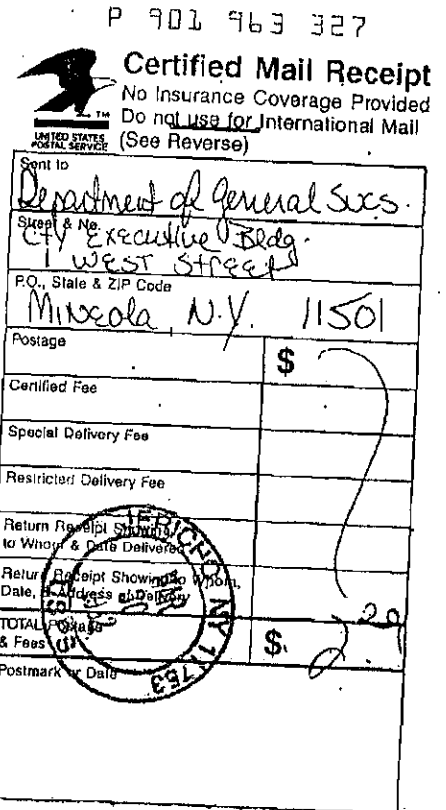 P 901 963 327
Certified Mail Receipt
No Insurance Coverage Provided
Do not use for International Mail
(See Reverse)
UNITED STATES
POSTAL SERVICE
TM
Sent to
Department of General Svcs.
Street & No.
Cty Executive Bldg.
1 WEST Street
P.O., State & ZIP Code
Mineola, N.Y. 11501
Postage
$
Certified Fee
Special Delivery Fee
Restricted Delivery Fee
Return Receipt Showing
to Whom & Date Delivered
Return Receipt Showing to Whom,
Date, & Address of Delivery
TOTAL Postage
& Fees
$ 2 29
Postmark or Date
JERICHO NY 11753